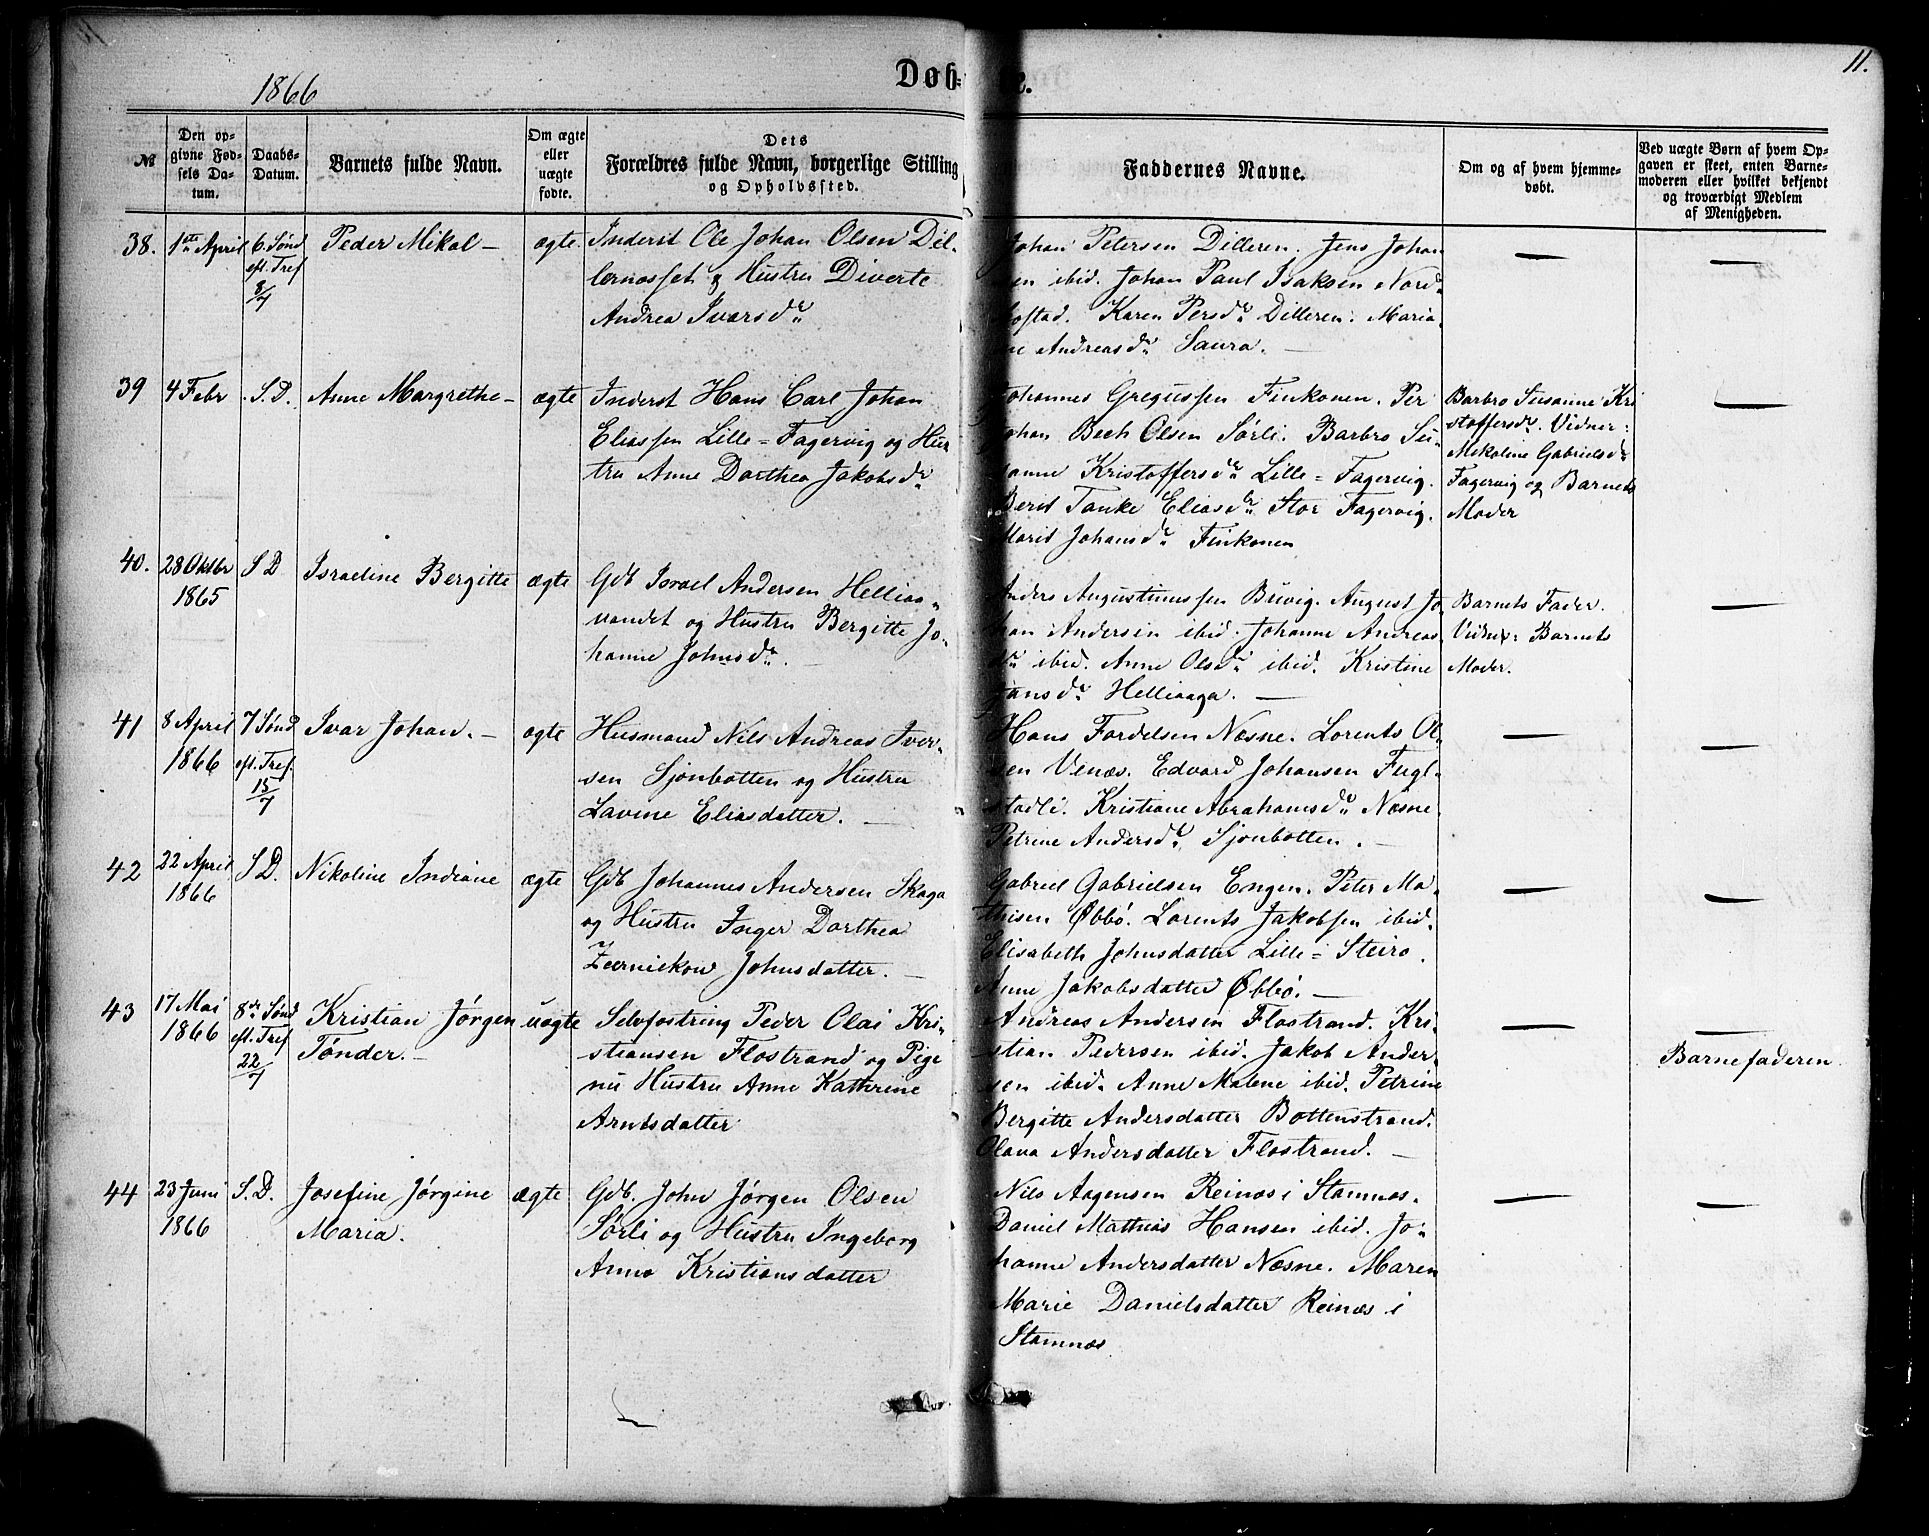 1866
Døb-
e.
11.
№
Den op-
givne Fød-
sels Da-
tum.
Daabs-
Datum.
Barnets fulde Navn.
Om ægte
eller
uægte
fødte.
Dets
Forældres fulde Navn, borgerlige Stilling
og Opholdssted.
Faddernes Navne.
Om og af hvem hjemme-
døbt.
Ved uægte Børn af hvem Op-
gaven er skeet, enten Barne-
moderen eller hvilket bekjendt
og troværdigt Medlem
af Menigheden.
38.
1ste April
6. Sønd
eft. Tref
8/7
Peder Mikal –
ægte.
Inderst Ole Johan Olsen Dil-
lernæsset & Hustru Diverte
Andrea Ivarsdr
Johan Petersen Dilleren. Jens Johan
sen ibid. Johan Paul Isaksen Nord-
bostad. Karen Persdr Dilleren. Maria-
ne Andreasdr Saura. –
39
4 Febr
S.D.
Anne Margrethe –
ægte
Inderst Hans Carl Johan
Eliassen Lille=Fagervig og Hus
tru Anne Dorthea Jakobsdr
Johannes Gregussen Finkonen. Per
Johan Bech Olsen Sørli. Barbro Su-
sanne Kristoffersdr Lille=Fagervig.
Berit Tanke Eliasdr Stor Fagervig.
Marit Johansdr Finkonen
Barbro Susanne Kri
stoffersdr. Vidner:
Mekoline Gabrielsdr
Fagervig og Barnets
Moder
40.
28 Oktbr
1865
S D
Israeline Bergitte
ægte
Gdb Israel Andersen Helliaa-
vandet og Hustru Bergitte Jo-
hanne Johnsdr. –
Anders Augustinussen Buvig. August Jo-
han Andersen ibid. Johanne Andreas
dr ibid. Anne Olsdr ibid. Kristine
Hansdr Helliaaga. –
Barnets Fader.
Vidner: Barnets
Moder.
41
8 April
1866
7 Sønd
eft. Tref.
15/7
Ivar Johan. –
ægte
Husmand Nils Andreas Iver-
sen Sjonbotten og Hustru
Lavine Eliasdatter. –
Hans Fordelsen Næsne. Lorents Ol-
sen Venæs. Edvard Johansen Fugl-
stadli. Kristiane Abrahamsdr Næsne.
Petrine Andersdr Sjonbotten. –
42
22 April
1866
S.D.
Nikoline Indiane
ægte
Gdb Johannes Andersen Skaga
og Hustru Inger Dorthea
Zernickow Johnsdatter. –
Gabriel Gabrielsen Engen. Peter Ma-
thisen Øbbø. Lorents Jakobsen ibid.
Elisabeth Johnsdatter Lille=Steiro.
Anne Jakobsdatter Øbbø. –
43
17 Mai
1866
8de Sønd
eft. Tref
22/7
Kristian Jørgen
Tønder. –
uægte
Selvfostring Peder Olai Kri-
stiansen Flostrand og Pige
nu Hustru Anne Kathrine
Arntsdatter
Andreas Andersen Flostrand. Kri-
stian Pedersen ibid. Jakob Ander-
sen ibid. Anne Malene ibid. Petrine
Bergitte Andersdatter Bottenstrand.
Olava Andersdatter Flostrand. –
Barnefaderen
44
23 Juni
1866
S.D.
Josefine Jørgine
Maria.
ægte
Gdb. John Jørgen Olsen
Sørli og Hustru Ingeborg
Anna Kristiansdatter
Nils Aagensen Reinæs i Stamnæs.
Daniel Mathias Hansen ibid. Jo-
hanne Andersdatter Næsne. Maren
Marie Danielsdatter Reinæs i
Stamnæs